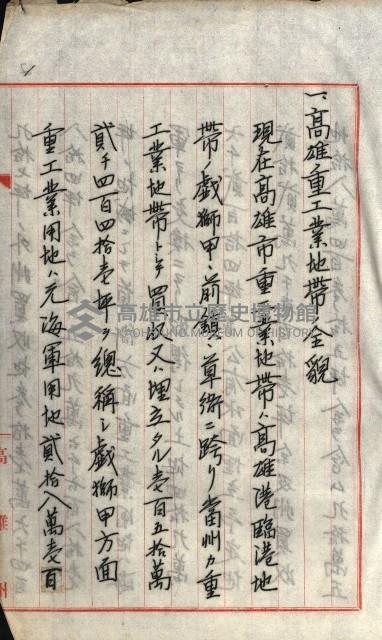 一、高雄重工業地帶ノ全貌
現在高雄市重工業地帶ハ高雄港臨港地
帶ノ戲獅甲、前鎮、草衙ニ跨リ當州カ重
工業地帶トシテ買收又ハ埋立タル壱百五拾萬
貳千四百四拾壱坪ヲ總稱シ戲獅甲方面
重工業用地ハ元海軍用地貳拾八萬壱百
高雄市立歷史博物館
KAOHSIUNG MUSEUM OF HISTORY
高雄州